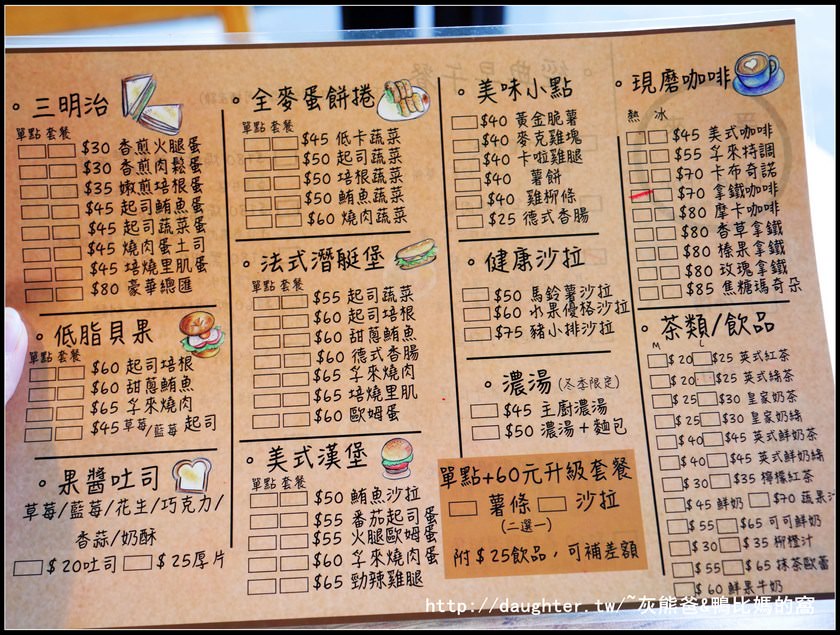 。三明治
單點 套餐
$30 香煎火腿蛋
$30 香煎肉鬆蛋
$35 嫩煎培根蛋
$45 起司鮪魚蛋
$45 起司蔬菜蛋
$45 燒肉蛋土司
$45 培燒里肌蛋
$80 豪華總匯
。低脂貝果
單點 套餐
$60 起司培根
$60 甜蔥鮪魚
$65 孚來燒肉
$45 草莓/藍莓 起司
。果醬吐司
草莓/藍莓/花生/巧克力/
香蒜/奶酥
$20吐司 $25厚片
。全麥蛋餅捲
單點 套餐
$45 低卡蔬菜
$50 起司蔬菜
$50 培根蔬菜
$50 鮪魚蔬菜
$60 燒肉蔬菜
。法式潛艇堡
單點 套餐
$55 起司蔬菜
$60 起司培根
$60 甜蔥鮪魚
$60 德式香腸
$65 孚來燒肉
$65 培燒里肌
$60 歐姆蛋
。美式漢堡
單點 套餐
$50 鮪魚沙拉
$55 番茄起司蛋
$55 火腿歐姆蛋
$60 孚來燒肉蛋
$65 勁辣雞腿
。美味小點
$40 黃金脆薯
$40 麥克雞塊
$40 卡啦雞腿
$40 薯餅
$40 雞柳條
$25 德式香腸
。健康沙拉
$50 馬鈴薯沙拉
$60 水果優格沙拉
$75 豬小排沙拉
。濃湯(冬季限定)
$45 主廚濃湯
$50 濃湯+麵包
單點+60元升級套餐
薯條 沙拉
(二選一)
附$25飲品,可補差額
。現磨咖啡
熱 冰
$45 美式咖啡
$55 孚來特調
$70 卡布奇諾
$70 拿鐵咖啡
$80 摩卡咖啡
$80 香草拿鐵
$80 榛果拿鐵
$80 玫瑰拿鐵
$85 焦糖瑪奇朵
。茶類/飲品
M L
$20 $25 英式紅茶
$20 $25 英式綠茶
$25 $30 皇家奶茶
$25 $30 皇家奶綠
$40 $45 英式鮮奶茶
$40 $45 英式鮮奶綠
$30 $35 檸檬紅茶
$45 鮮奶 $70 蔬果汁
$55 $65 可可鮮奶
$30 $35 柳橙汁
$55 $65 抹茶歐蕾
$60 鮮果牛奶
http://daughter.tw/~灰熊爸&鴨比媽的窩